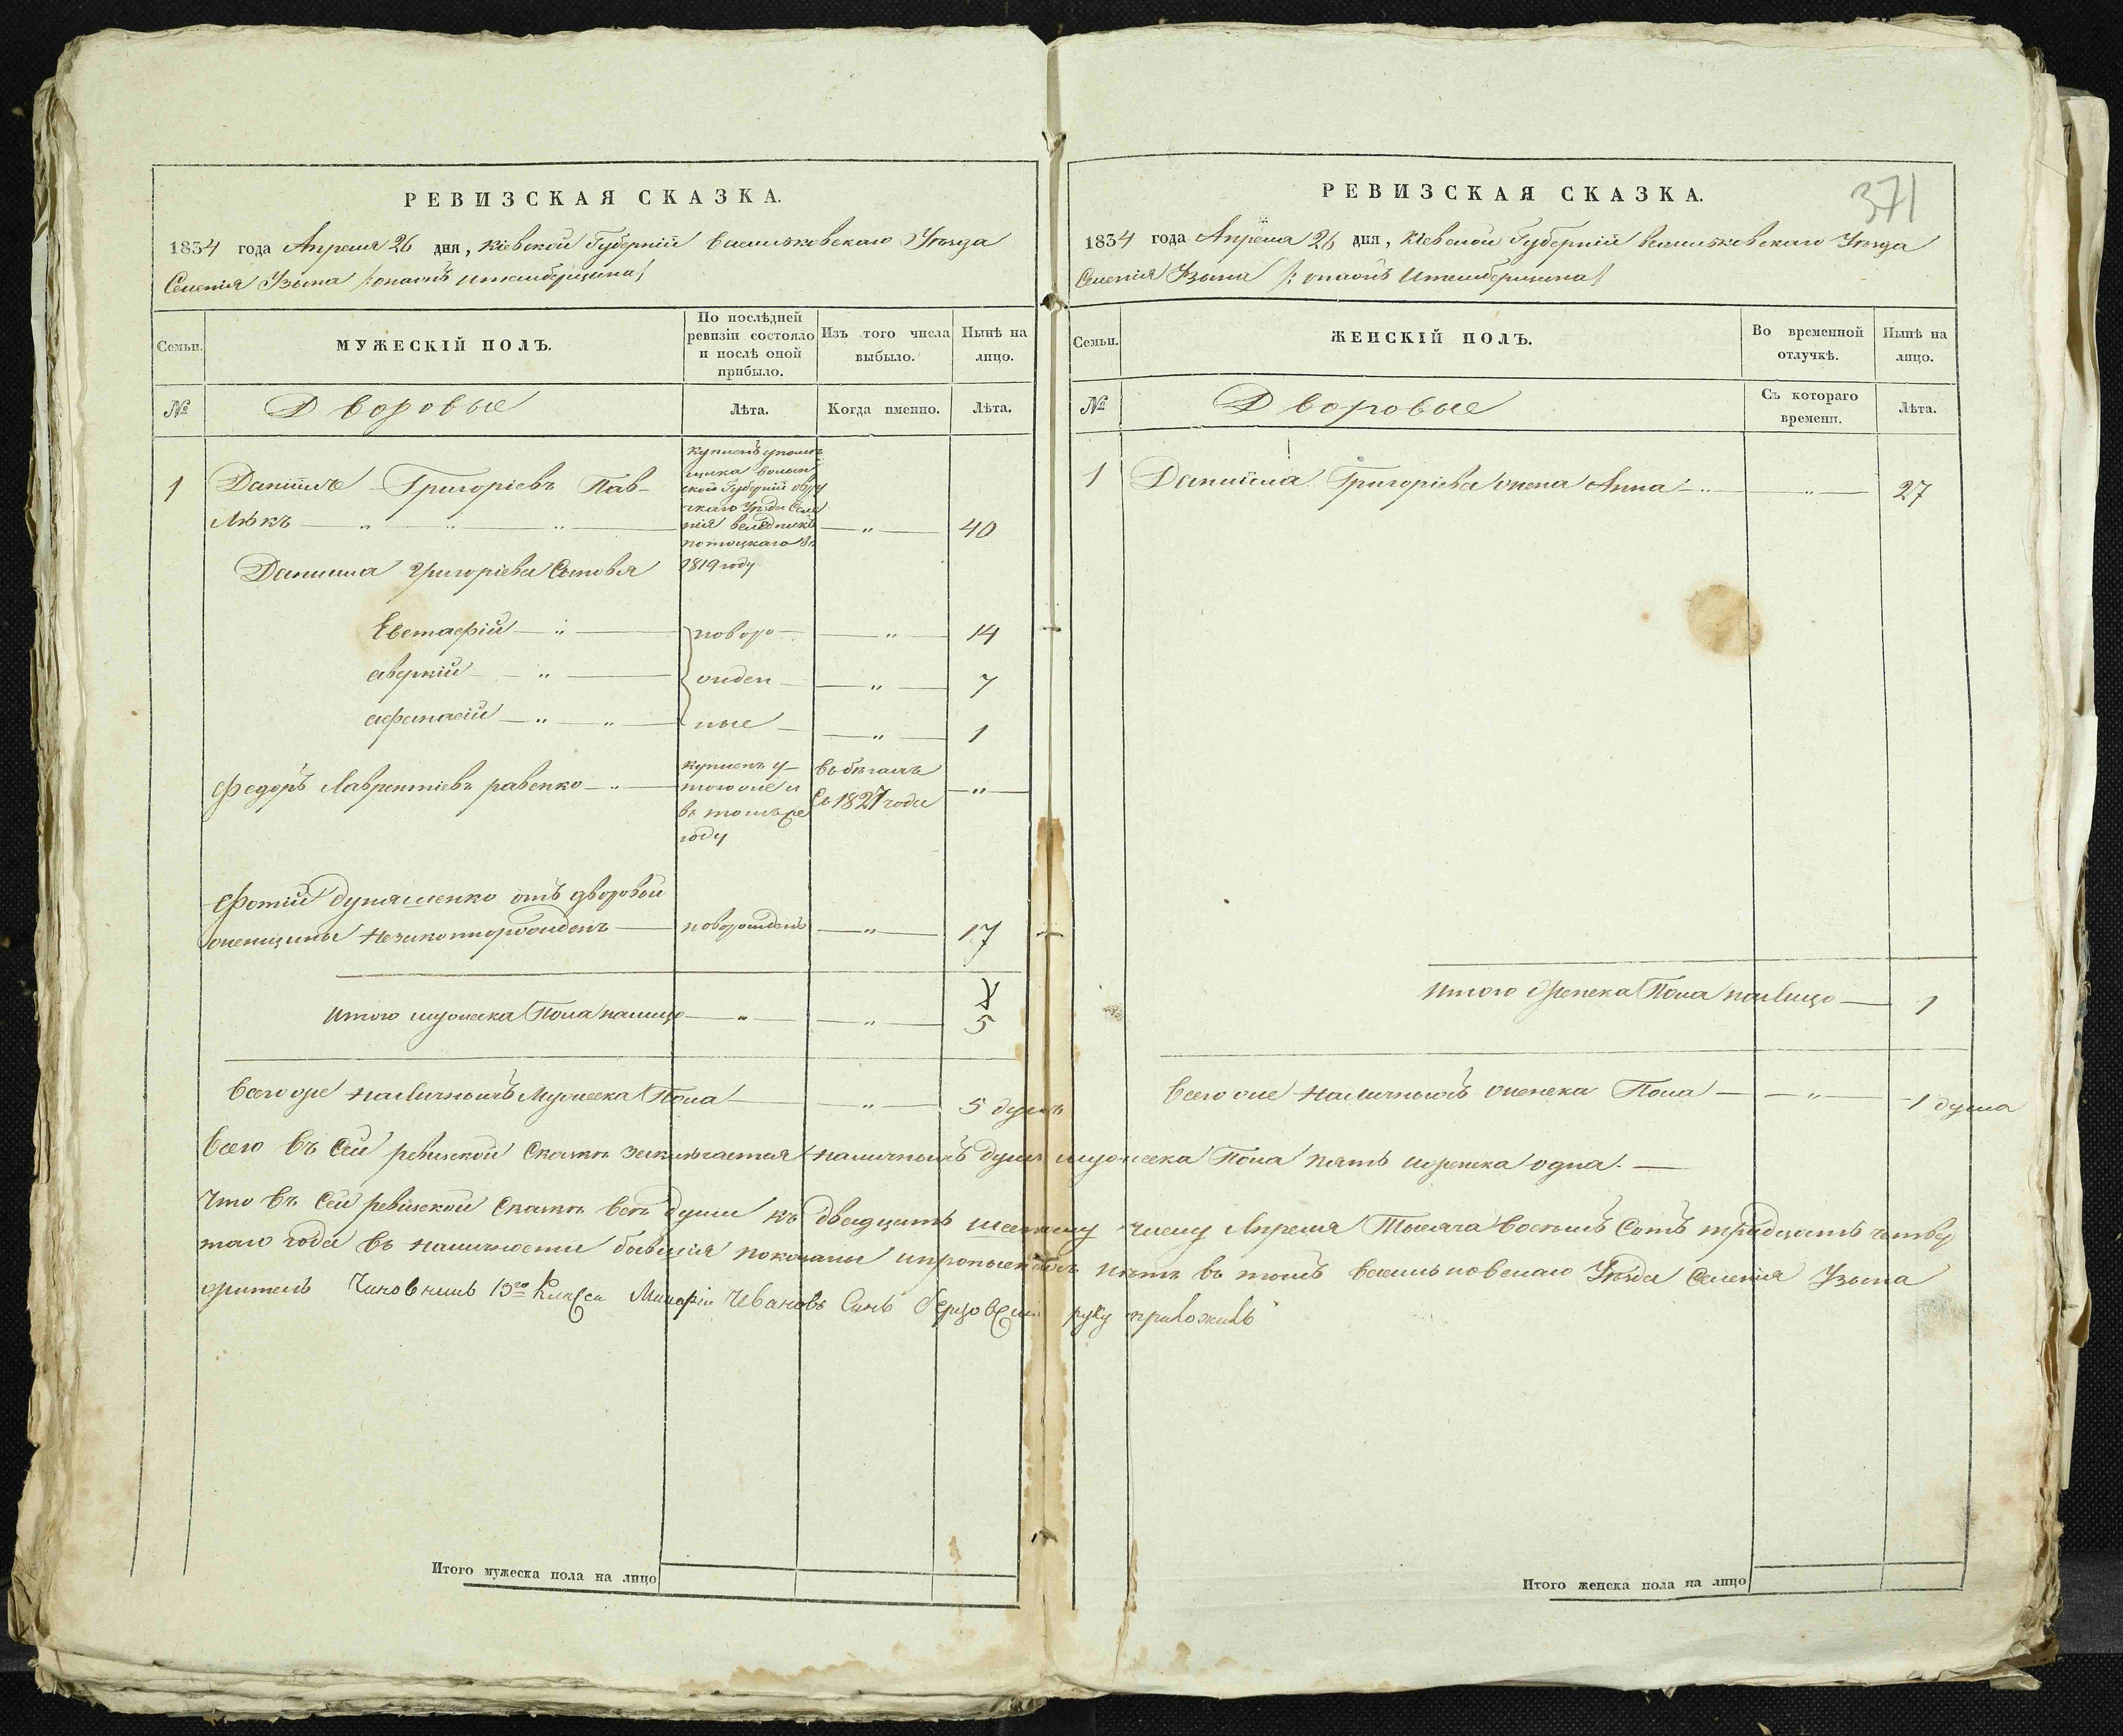 РЕВИЗСКАЯ СКАЗКА.
1834 года Апреля 26 дня, Кіевской Губерніи Васильковскаго Уѣзда
Селенія Узина
МУЖЕСКІЙ ПОЛЪ.
Семьи.
По послѣдней
ревизіи состояло
и послѣ оной
прибыло.
Изъ того числа
выбыло.
Нынѣ на
лицо.
№
Дворовые
Лѣта.
Когда именно.
Лѣта.
1
Даніилъ Григоріевъ Пав-
лѣкъ 40
купленъ у помѣ
щика волын
ской Губерніи овру
чкаго Уѣзда Селе
нія веледникъ
потоцкаго въ
1819 году
Даниила Григоріева Сыновья
Евстафій 14
аверкій 7
афанасій 1
новоро
жден
ные
Федоръ Лаврентіевъ равенко
купленъ у
того же и
въ томъ же
году
въ бѣгахъ
Съ 1827 года
Фотій дуняшенко отъ дворовой
женщины незаконнорожденъ
новорожденъ
17
Итого мужеска Пола налицо 5
Всего же наличныхъ Мужеска Пола 5 душъ
РЕВИЗСКАЯ СКАЗКА.
371
1834 года Апреля 26 дня, Кіевской Губерніи Васильковскаго Уѣзда
Селенія Узина
Семьи.
ЖЕНСКІЙ ПОЛЪ.
Во временной
отлучкѣ.
Нынѣ на
лицо.
№
Дворовые
Съ котораго
времени.
Лѣта.
1
Даниила Григоріева жена Анна 27
Итого Женска Пола на Лицо 1
Всего же Наличныхъ женска Пола 1 душа
Всего въ Сей ревизской Сказкѣ заключается наличныхъ душъ мужеска Пола пять и женска одна.
Что въ Сей ревизской Сказкѣ всѣ души къ двадцать шестому числу Апреля Тысяча Восемь Сотъ тридцать четвер
таго года въ наличности бывшія показаны и пропущенныхъ нѣтъ въ томъ васильковскаго Уѣзда Селенія Узина
Чиновникъ 13го Класса Ивановъ Сынъ руку приложилъ
Итого мужеска пола на лицо
Итого женска пола на лицо